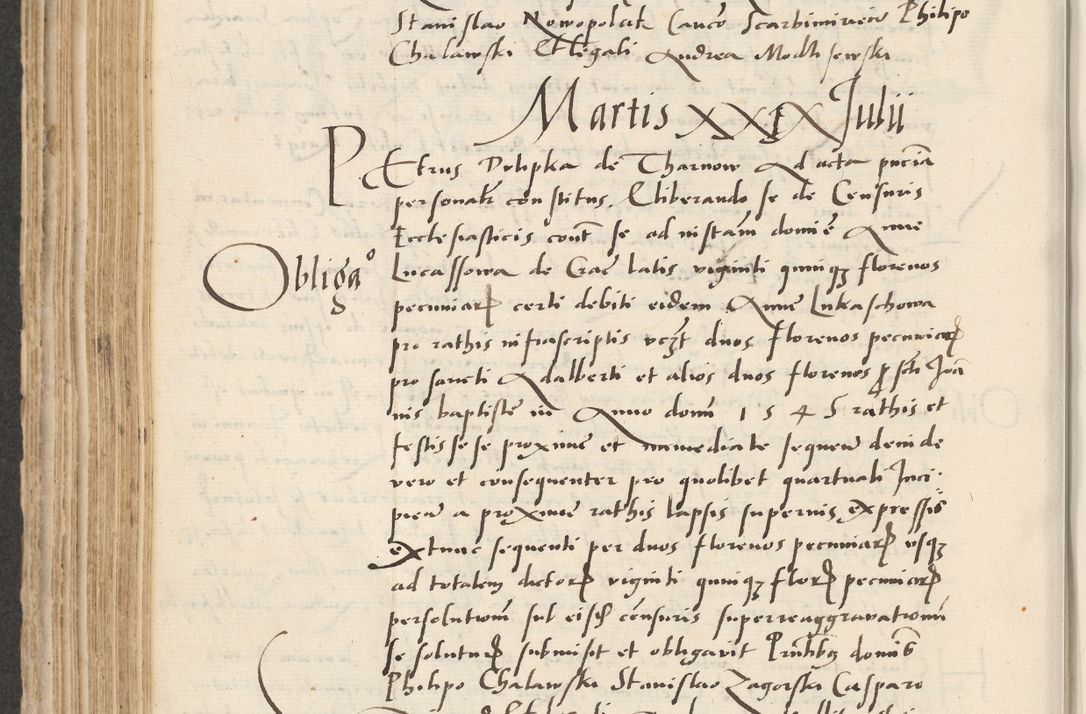 Stanislao Nowopolcik Canco Scarbimirien Philipo
Chalawski Et legali Andrea Modlisewski
Martis XXIX Julii
PEtrus Dulipka de Tharnow Ad acta pnciã
personalr constitus, Eliberando se de Censuris
Ecclesiasticis contr se ad instam domie Anne
Obligao
Lucassowa de Crac latis viginti quinqȝ florenos
pecuniarȝ certi debiti eidem Anne Lukaschowa
pro rathis infrascriptis vcȝt duos florenos pecuniarȝ
pro sancti Adalberti et alios duos florenos p scti Joã
nis baptiste in Anno domi 1545 rathis et
festis sese proxime et immediate sequen deinde
vero et consequenter pro quolibet quartuali Inci-
pien a proxime rathis lapsis supernis expressis
extunc sequenti per duos florenos pecuniarȝ vsqȝ
ad totalem dictorȝ viginti quinqȝ florȝ pecuniarȝ
persolutionem sub eisd censuris superreaggravationum
se soluturȝ submisit et obligavit Pntibȝ dominis
Philipo Chalawski Stanislao Zagorski Casparo